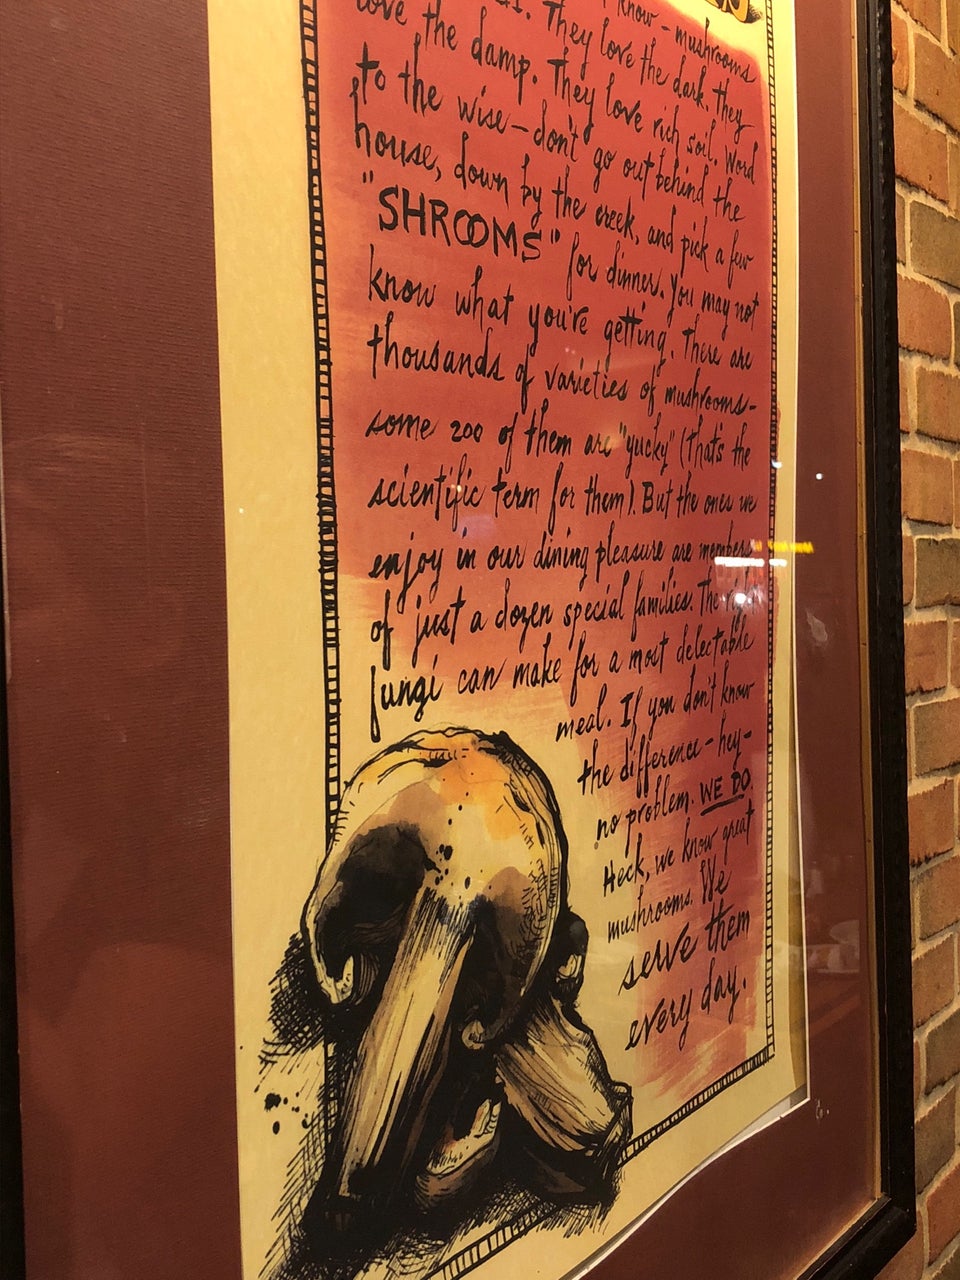 know - mushrooms
They love the dark. They
love the damp. They love rich soil. Word
to the wise - don't go out behind the
house, down by the creek, and pick a few
"SHROOMS" for dinner. You may not
know what you're getting. There are
thousands of varieties of mushrooms -
some 200 of them are "yucky" (that's the
scientific term for them). But the ones we
enjoy in our dining pleasure are members
of just a dozen special families. The right
fungi can make for a most delectable
meal. If you don't know
the difference - hey -
no problem. WE DO.
Heck, we know great
mushrooms. We
serve them
every day.